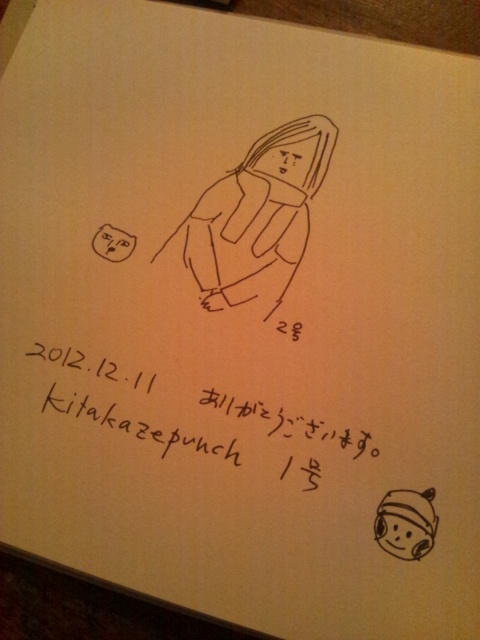 2号
2012.12.11 ありがとうございます。
kitakazepunch 1号